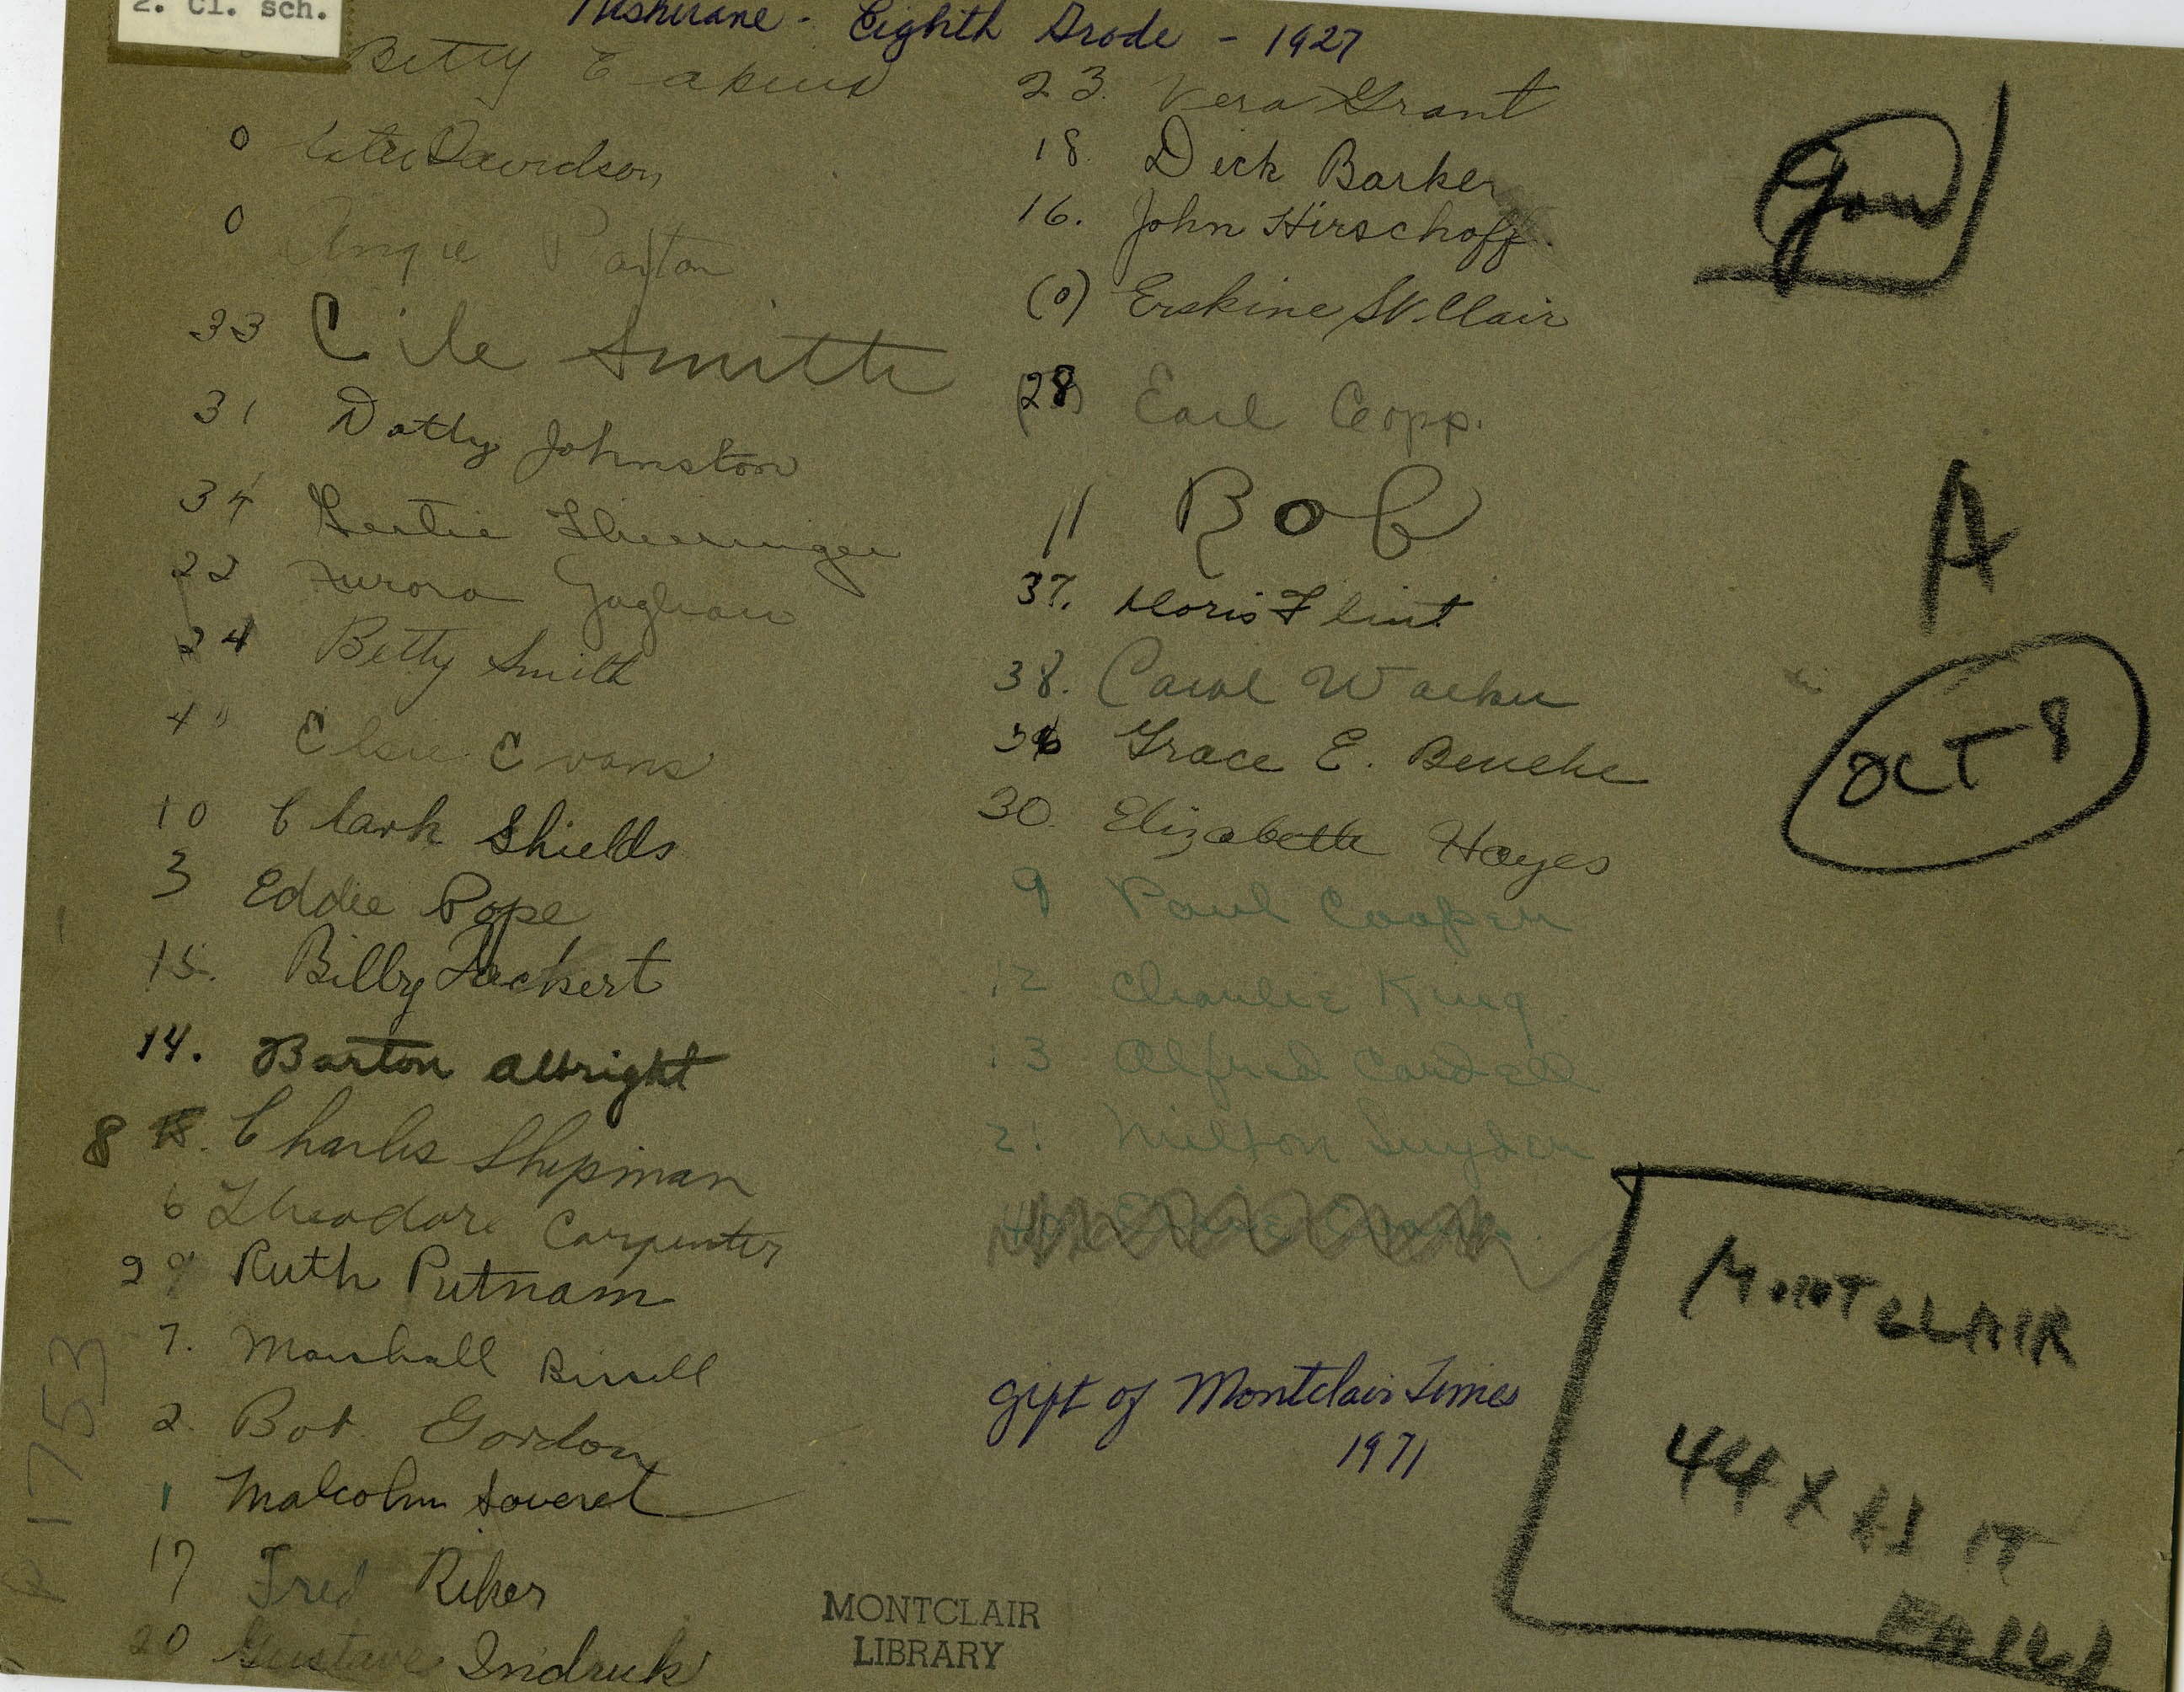 2. Cl. sch.
Nishuane - Eighth Grade - 1927
Betty Eakins
0 Davidson
0 Angie Paxton
33 Cile Smith
31 Dotty Johnston
34 Gertie
22 Aurora Gagliano
24 Betty Smith
Elsie Evans
10 Clark Shields
3 Eddie Pope
15. Billy Teckert
14. Barton Albright
8 18. Charles Shipman
6 Theodore Carpenter
29 Ruth Putnam
7. Marshall Bissell
2. Bob Gordon
1 Malcolm Soverel
17 Fred Riker
20 Gustave Indruk
P1753
23. Vera Grant
18. Dick Barker
16. John Hirschoff.
(0) Erskine St. Clair
(28) Earl Copp.
11 Bob
37. Doris Flint
38. Carol Walker
36 Grace E. Benche
30. Elizabeth Hayes
9 Paul Cooper
12 Charlie King.
13 Alfred Cardell
21 Milton Snyder
gift of Montclair Times
1971
MONTCLAIR
LIBRARY
A
OCT 8
MONTCLAIR
44 X